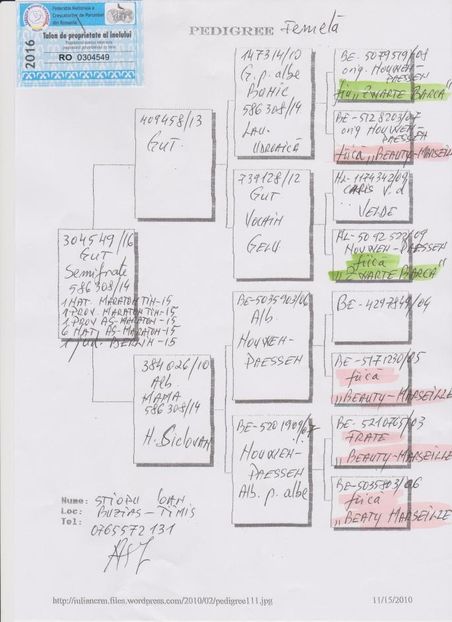 Federația Națională a
Crescătorilor de Porumbei
din Romania
2016
Talon de proprietate al inelului
RO 0304549
PEDIGREE Femelă
409458/13
GUT.
304549/16
GUT
Semifrate
586308/14
1 NAT. MARATON TIH-15
1 PROV MARATON TIH-15
1 PROV AS-MARATON-15
6 NAT, AS-MARATON-15
BERLIN-15
384026/10
Alb.
MAMA
586308/14
H. Siclovan
147314/10
G. p. albe
BUHIC
586308/14
LAU.
739128/12
GUT
VOCHIN
GELU
BE-5035903/06
Alb
HOUWEN-
PAESSEN
BE-5201909/07
HOUWEN-
PAESSEN
Alb. p. albe
BE-5079519/08
orig HOUWEN
PAESSEN
fiu „ZWARTE BARCA"
BE-5128203/07
orig HOUWEN-
PAESSEN
fiica „BEAUTY-MARSEILLE
NL-1174342/09
V. d
VELDE
NL-5092522/09
HOUWEN-PAESSEN
fiica
„ZWARTE BARCA"
BE-4297849/04
BE-5171230/05
fiică
„BEAUTY-MARSEILLE
BE-5210765/03
FRATE
„BEAUTY-MARSEILLE
BE-5035803/06
fiică
„BEATY MARSEILLE"
Nume: STIOPU IOAN
Loc: BUZIAS-TIMIS
Tel: 0765572131
http://iuliancrm.files.wordpress.com/2010/02/pedigree111.jpg
11/15/2010